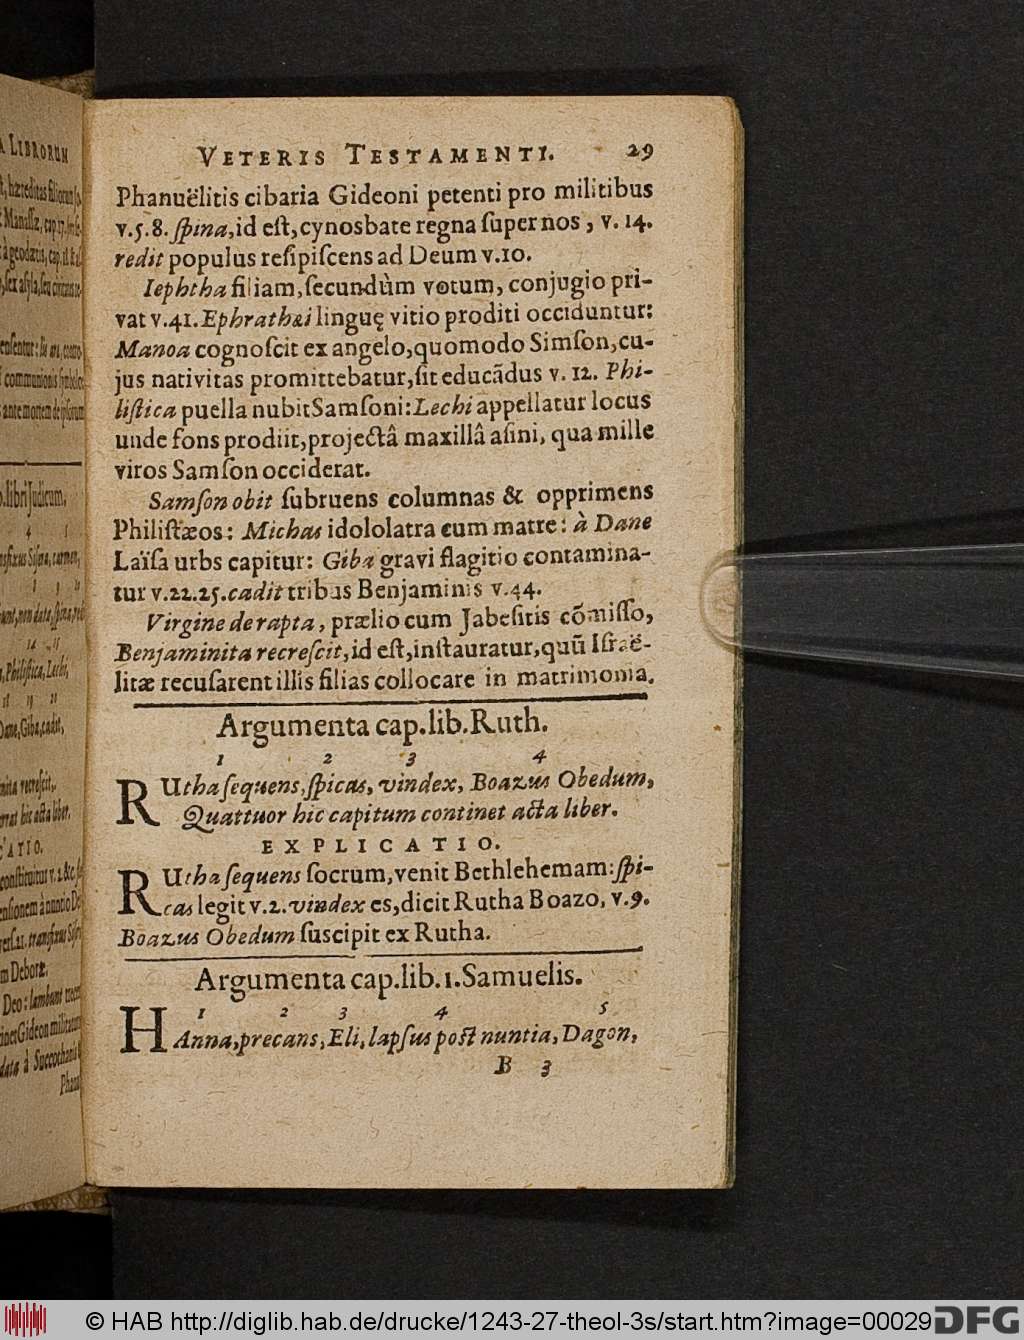 VETERIS TESTAMENTI. 29
Phanuëlitis cibaria Gideoni petenti pro militibus
v.5.8. ſpina, id eſt, cynosbate regna ſuper nos, v. 14.
redit populus reſipiſcens ad Deum v.10.
Iephtha filiam, ſecundùm votum, conjugio pri-
vat v.41. Ephrathæi linguę vitio proditi occiduntur:
Manoa cognoſcit ex angelo, quomodo Simſon, cu-
jus nativitas promittebatur, ſit educãdus v. 12. Phi-
liſtica puella nubit Samſoni: Lechi appellatur locus
unde fons prodiit, projectâ maxillâ aſini, qua mille
viros Samſon occiderat.
Samſon obit ſubruens columnas & opprimens
Philiſtæos: Michas idololatra cum matre: à Dane
Laïſa urbs capitur: Giba gravi flagitio contamina-
tur v.22.25. cadit tribus Benjaminis v.44.
Virgine derapta, prælio cum Jabeſitis cõmiſſo,
Benjaminita recreſcit, id eſt, inſtauratur, quũ Iſraë-
litæ recuſarent illis filias collocare in matrimonia.
Argumenta cap. lib. Ruth.
1 2 3 4
RUtha ſequens, ſpicas, vindex, Boazus Obedum,
Quattuor hic capitum continet acta liber.
EXPLICATIO.
RUtha ſequens ſocrum, venit Bethlehemam: ſpi-
cas legit v.2. vindex es, dicit Rutha Boazo, v.9.
Boazus Obedum ſuscipit ex Rutha.
Argumenta cap. lib. 1. Samuelis.
1 2 3 4 5
HAnna, precans, Eli, lapſus poſt nuntia, Dagon,
B 3
© HAB http://diglib.hab.de/drucke/1243-27-theol-3s/start.htm?image=00029
DFG